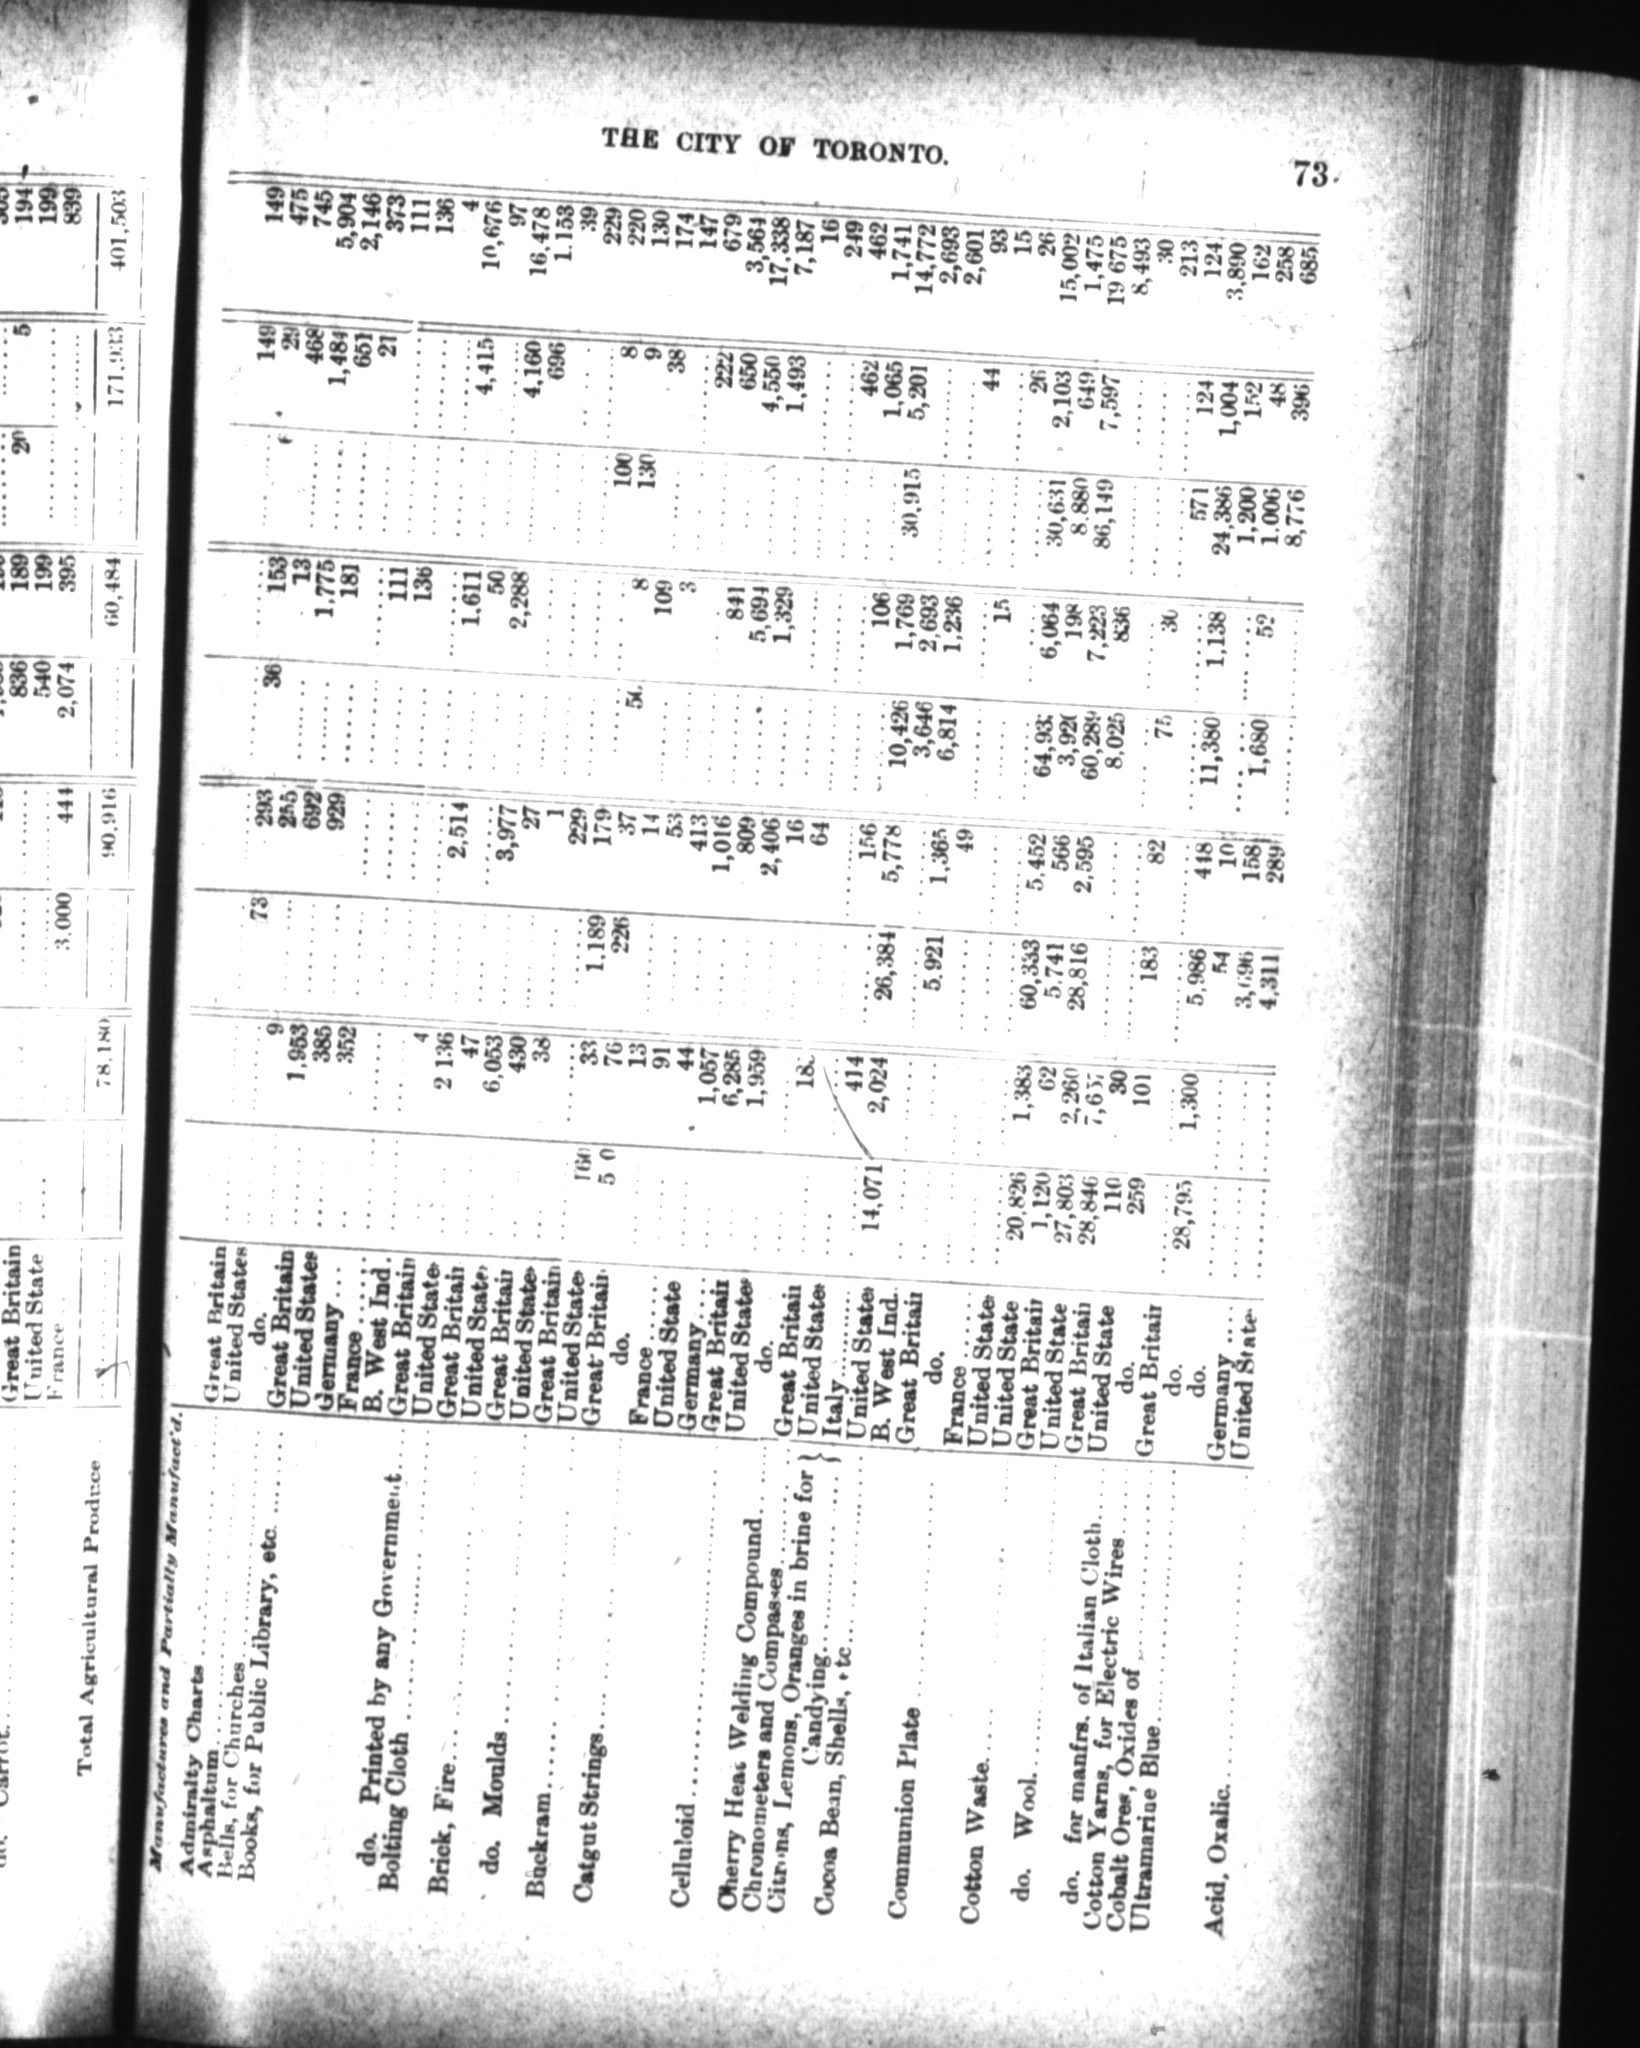 THE CITY OF TORONTO. 73.
Great Britain 836 189 20 5 194
United State 540 199 199
France 3,000 444 2,074 395 839
Total Agricultural Produce 78,180 90,916 60,484 171,933 401,503
Manufactures and Partially Manufact'd.
Admiralty Charts Great Britain 149 149
Asphaltum United States 73 293 36 153 6 29 475
Bells, for Churches do. 9 255 13 468 745
Books, for Public Library, etc. Great Britain 1,953 692 1,775 1,484 5,904
United States 385 929 181 651 2,146
Germany 352 21 373
France 111 111
B. West Ind. 136 136
do. Printed by any Government Great Britain 4 4
Bolting Cloth United State 2 136 2,514 1.611 4,415 10,676
Great Britain 47 50 97
Brick, Fire United State 6,053 3,977 2,288 4,160 16,478
Great Britain 430 27 696 1.153
do. Moulds United State 38 1 39
Great Britain 229 229
Buckram United State 160 33 1.189 179 100 8 220
Great Britain 5 0 76 226 37 50 8 130 9 130
Catgut Strings do. 13 14 109 38 174
France 91 53 3 147
United State 44 413 222 679
Germany 1,057 1,016 841 650 3,564
Celluloid Great Britain 6,285 809 5,694 4,550 17,338
United State 1,959 2,406 1,329 1,493 7,187
Cherry Heat Welding Compound do. 16 16
Chronometers and Compasses Great Britain 64 249
Citrons, Lemons, Oranges in brine for United State 462 462
Candying Italy 414 156 106 1,065 1,741
Cocoa Bean, Shells, etc United State 14,071 2,024 26,384 5,778 10,426 1,769 30,915 5,201 14,772
B. West Ind. 3,646 2,693 2,693
Great Britain 5,921 1,365 6,814 1,236 2,601
Communion Plate do. 49 44 93
France 15 15
United State 26 26
Cotton Waste United State 20,826 1,383 60,333 5,452 64,932 6,064 30,631 2,103 15,002
Great Britain 1,120 62 5,741 566 3,920 198 8.880 649 1,475
do. Wool United State 27,803 2,260 28,816 2,595 60,289 7,223 86,149 7,597 19 675
Great Britain 28,846 7,657 8,025 836 8,493
do. for manfrs. of Italian Cloth United State 110 30 30
Cotton Yarns, for Electric Wires do. 259 101 183 82 75 30 213
Cobalt Ores, Oxides of Great Britain 571 124 124
Ultramarine Blue do. 28,795 1,300 5,986 448 11,380 1,138 24,386 1,004 3,890
do. 54 10 1,200 152 162
Germany 3,696 158 1,680 52 1.006 48 258
Acid, Oxalic United State 4,311 289 8,776 396 685